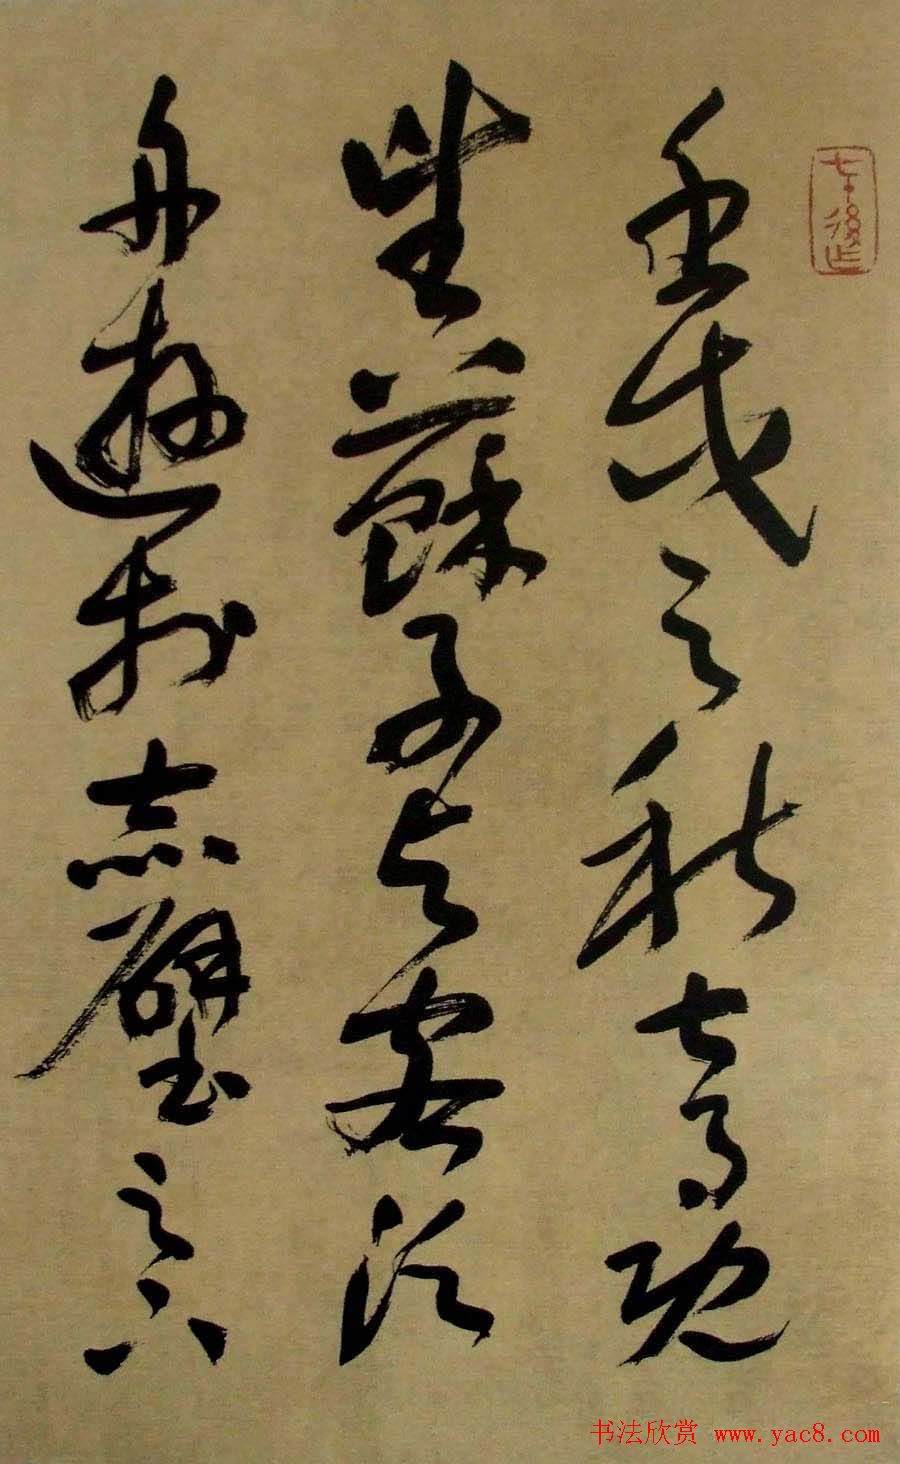 壬戌之秋七月既
望蘇子與客泛
舟遊於赤壁之下
七十後作
书法欣赏 www.yac8.com